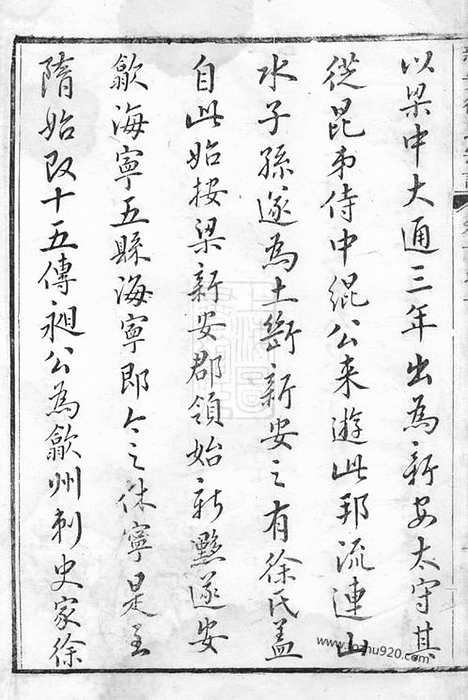 以梁中大通三年出為新安太守其
從昆弟侍中緄公来遊此邦流連山
水子孫遂為土斷新安之有徐氏蓋
自此始按梁新安郡領始新黟遂安
歙海寧五縣海寧即今之休寧是至
隋始改十五傳昶公為歙州刺史家徐